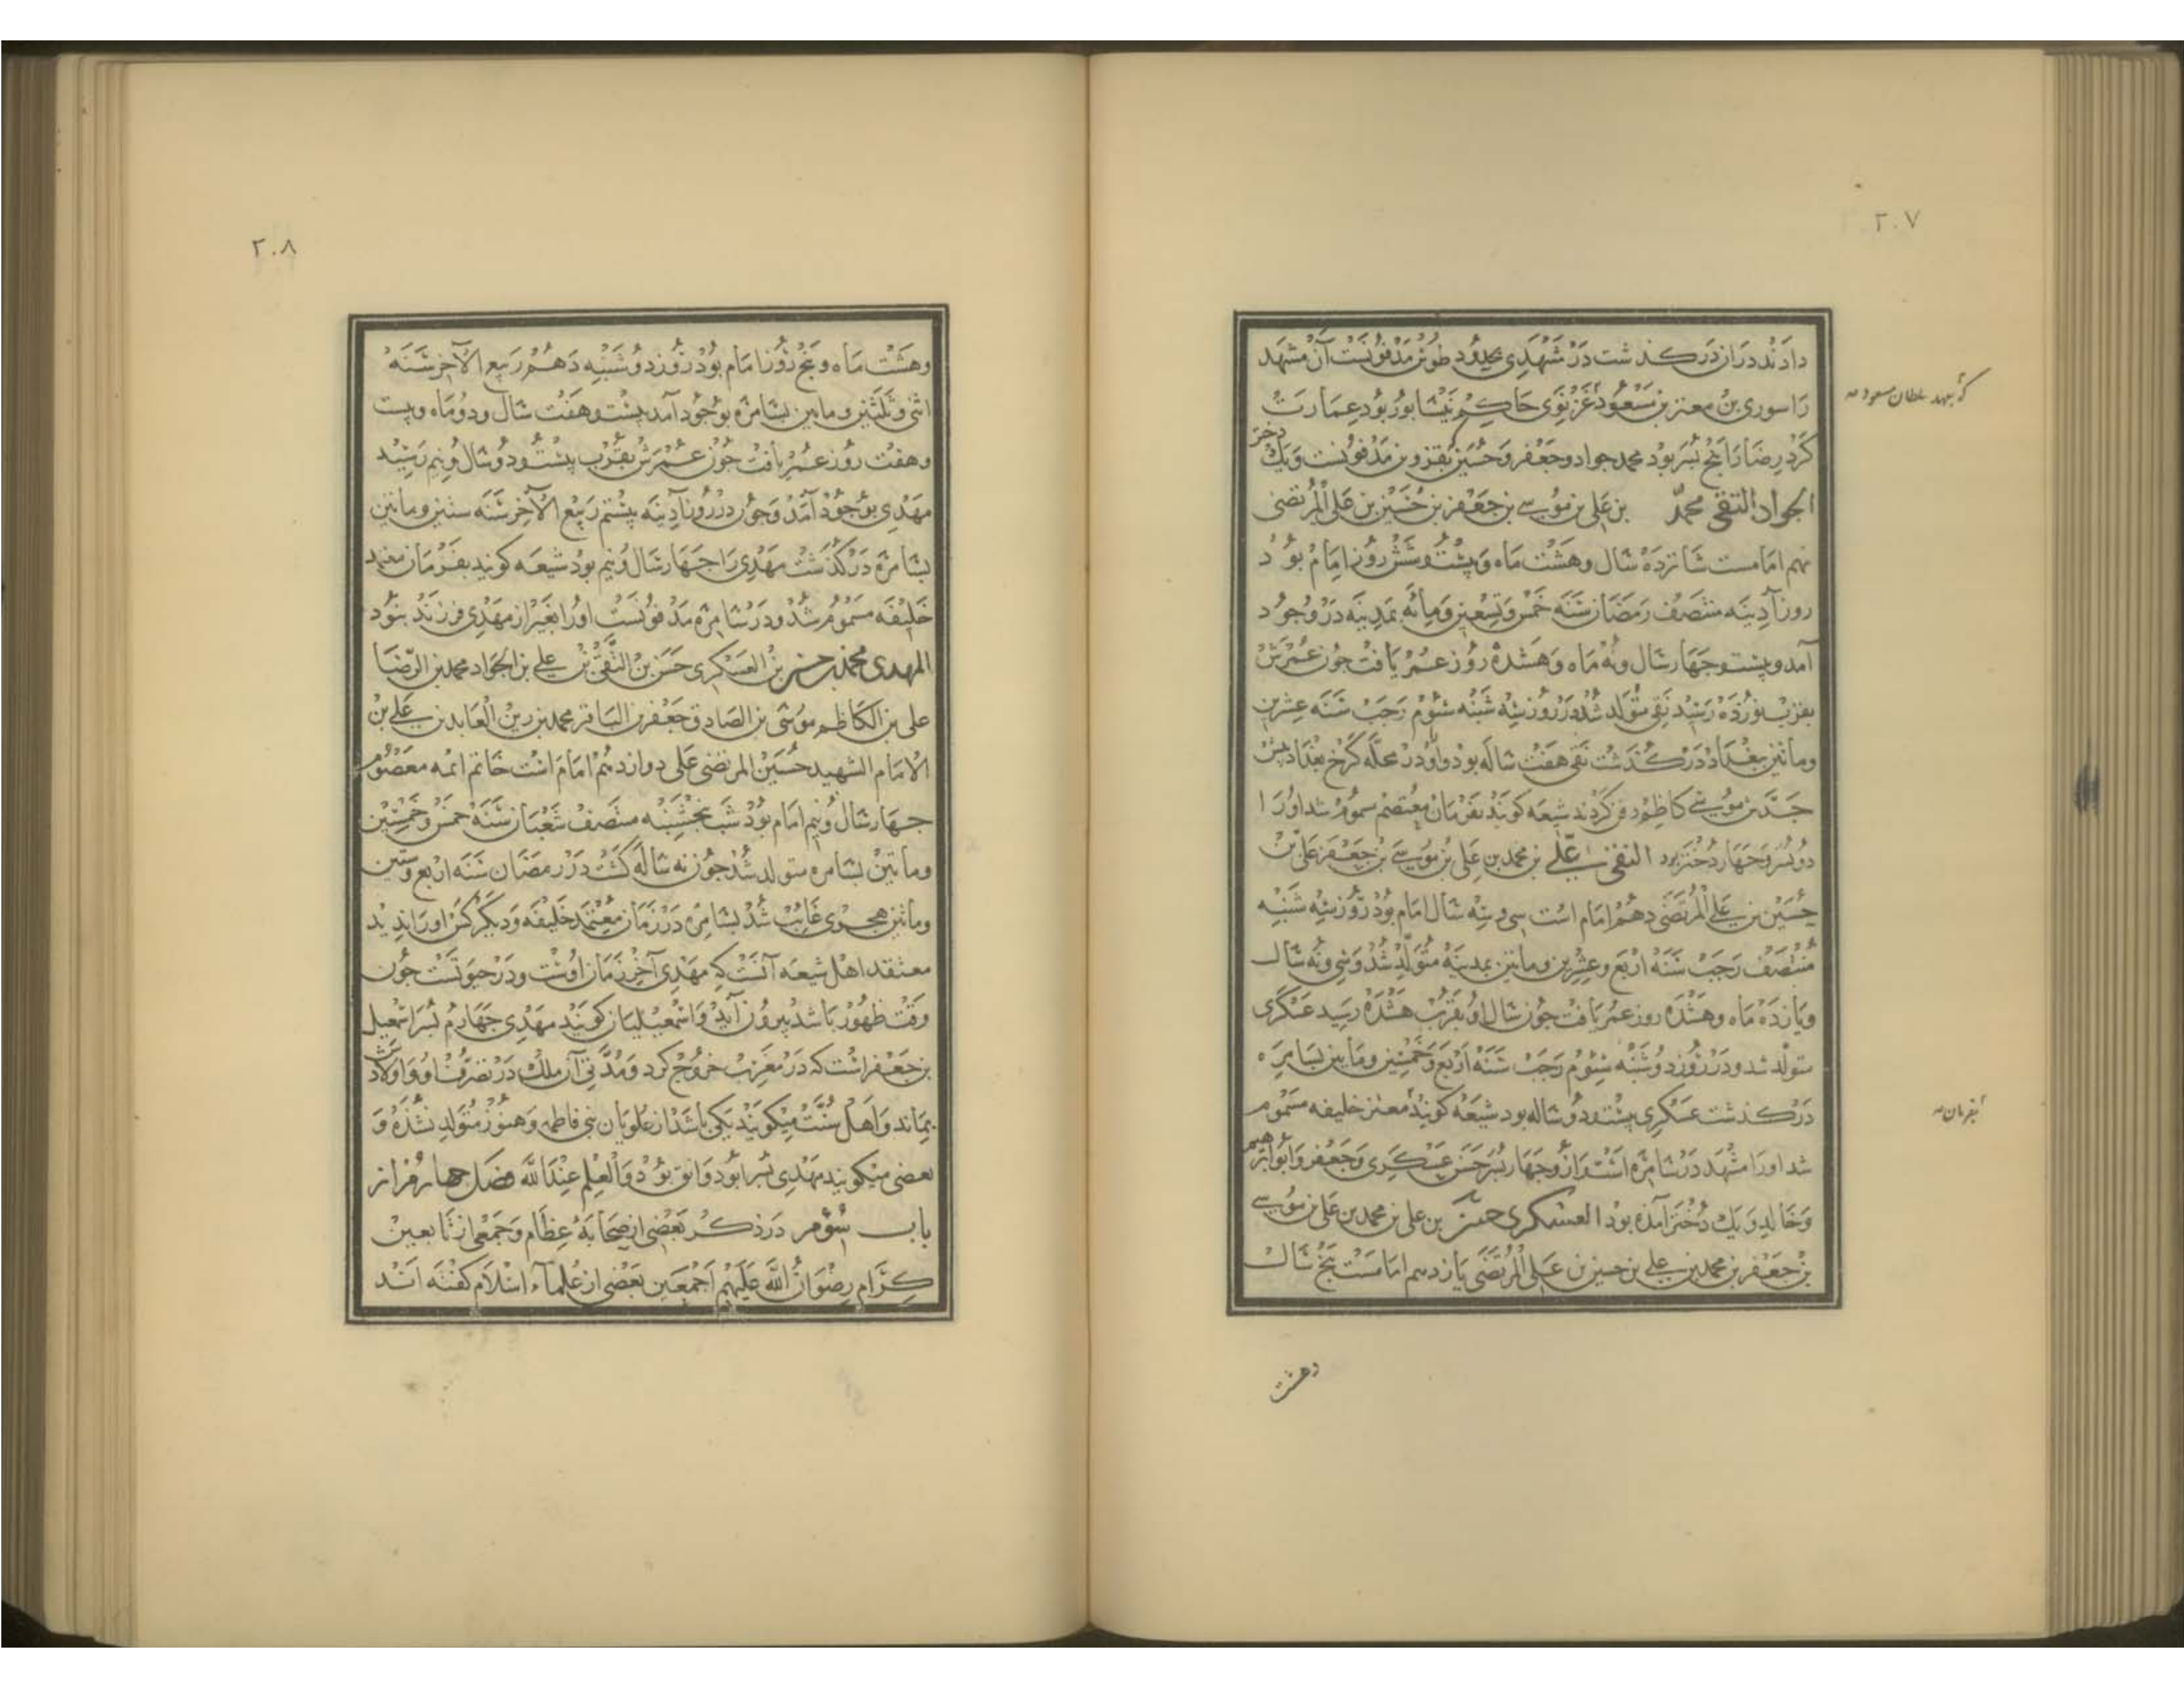 ۲۰۷
دادند در ان درکذشت در مشهدی بحدود طوس مدفونست آن مشهد
را سوری بن معتز بن مسعود غزنوی حاکم نیشابور بود عمارت
که بعهد سلطان مسعود
کرد رضا را پنج پسر بود محمد جواد و جعفر و حسین بقزوین مدفونست و یک دختر
الجواد التقی محمد بن علی بن موسی بن جعفر بن حسین بن علی المرتضی
نهم امامست شانزده سال و هشت ماه و بیست و شش روز امام بود
روز آدینه منتصف رمضان سنه خمس و تسعین و مأئه بمدینه در وجود
آمد و بیست و جهار سال و نه ماه و هشده روز عمر یافت جون عمرش
بقرب نوزده رسید نقی متولد شد در روز سه شنبه سوم رجب سنه عشرین
وماتین ببغداد درکذشت نقی هفت ساله بود و او در محله کرخ بغداد پیش
جدش موسی کاظم دفن کردند شیعه کویند بفرمان معتصم مسموم شد او را
دو پسر و جهار دختر بود النقی علی بن محمد بن علی بن موسی بن جعفر علی بن
حسین بن علی المرتضی دهم امام است سی و سه سال امام بود روز سه شنبه
منتصف رجب سنه اربع وعشرین وماتین بمدینه متولد شد و سی و نه سال
و یازده ماه و هشده روز عمر یافت جون سال او بقرب هشده رسید عسکری
متولد شد و در روز دوشنبه سوم رجب سنه اربع وخمسین وماتین بسامره
درکذشت عسکری بیست و دو ساله بود شیعه کویند معتز خلیفه مسموم
بفرمان
شد او را مشهد در سامره است و از و جهار پسر حسن عسکری و جعفر و ابراهیم
و خالد و یک دختر آمده بود العسکری حسن بن علی بن محمد بن علی بن موسی
بن جعفر بن محمد بن علی بن حسین بن علی المرتضی یازدهم امامست پنج سال
و هشت
۲۰۸
وهشت ماه و پنج روز امام بود روز دوشنبه دهم ربیع الآخر سنه
اثنی وثلثین وماتین بسامره بوجود آمد بیست و هفت سال و دو ماه و بیست
و هفت روز عمر یافت جون عمرش بقرب بیست و دو سال و نیم رسید
مهدی بوجود آمد و جون در روز آدینه بیستم ربیع الآخر سنه ستین وماتین
بسامره درکذشت مهدی را جهار سال و نیم بود شیعه کویند بفرمان معتمد
خلیفه مسموم شد و در سامره مدفونست او را بغیر از مهدی فرزند نبود
المهدی محمد بن حسن بن العسکری حسن بن النقی بن علی بن الجواد محمد بن الرضا
علی بن الکاظم موسی بن الصادق جعفر بن الباقر محمد بن زین العابدین علی بن
الامام الشهید حسین المرتضی علی دوازدهم امام است خاتم ائمه معصوم
جهار سال و نیم امام بود شب پنجشنبه منتصف شعبان سنه خمس وخمسین
وماتین بسامره متولد شد جون نه ساله کشت در رمضان سنه اربع وستین
وماتین هجری غایب شد بسامره در زمان معتمد خلیفه و دیکر کس او را ندید
معتقد اهل شیعه آنست که مهدی آخر زمان اوست و در حیوتست جون
وقت ظهور باشد بیرون آید و اسمعیلیان کویند مهدی جهارم پسر اسمعیل
بن جعفر است که در مغرب خروج کرد و مدتی آن ملک در تصرف او و اولادش
بماند و اهل سنت میکویند یکی باشد از علویان بنی فاطمه و هنوز متولد نشده و
بعضی میکویند مهدی پسر ابو دوانق بود والعلم عندالله فصل جهارم از
باب سوم در ذکر بعضی از صحابه عظام و جمعی از تابعین
کرام رضوان الله علیهم اجمعین بعضی از علماء اسلام کفته اند